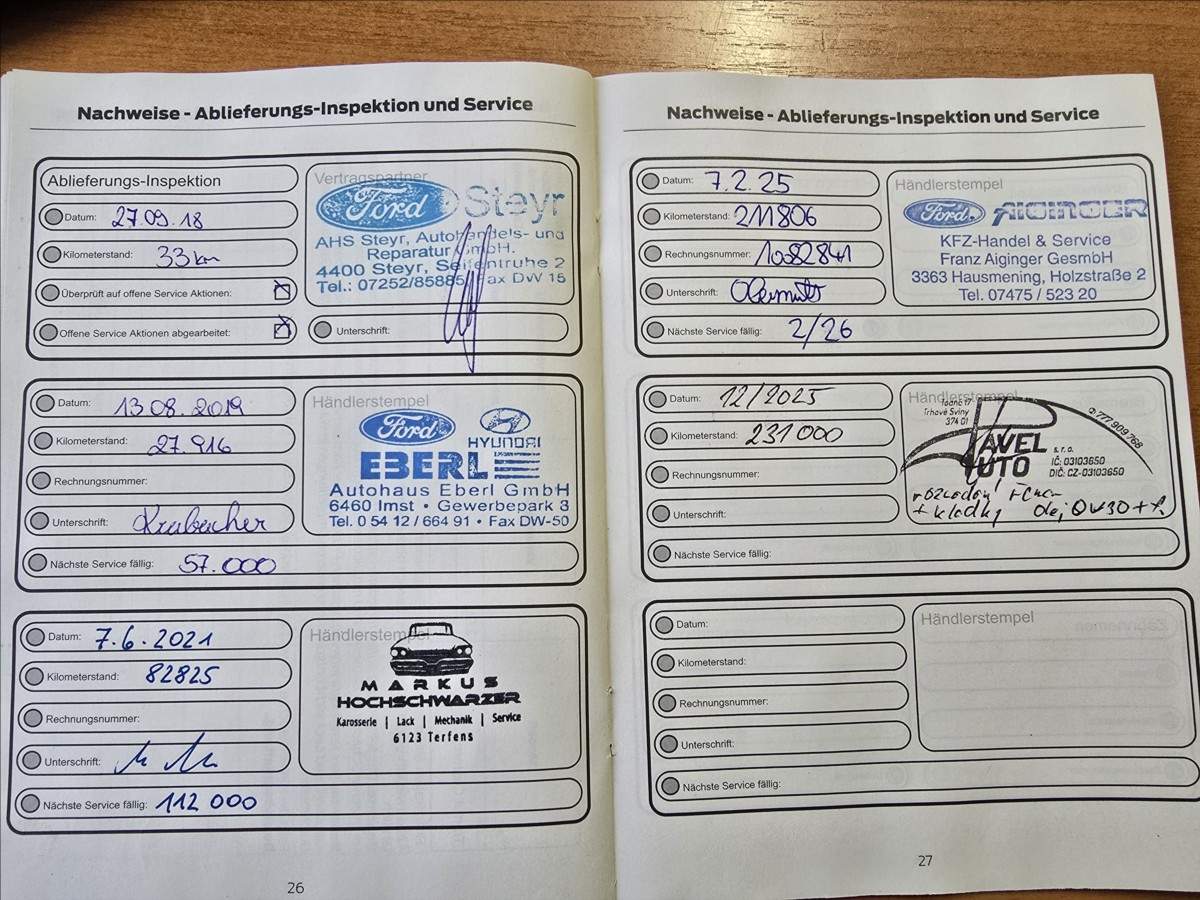 Nachweise - Ablieferungs-Inspektion und Service
Ablieferungs-Inspektion
Datum: 27.09.18
Kilometerstand: 33km
Überprüft auf offene Service Aktionen:
Offene Service Aktionen abgearbeitet:
Vertragspartner
Ford Steyr
AHS Steyr, Autohandels- und
Reparatur GmbH.
4400 Steyr, Seifentruhe 2
Tel.: 07252/85885, Fax DW 15
Unterschrift:
Datum: 13 08. 2019
Kilometerstand: 27.916
Rechnungsnummer:
Unterschrift: Krabacher
Nächste Service fällig: 57.000
Händlerstempel
Ford HYUNDAI
EBERL
Autohaus Eberl GmbH
6460 Imst • Gewerbepark 3
Tel. 0 54 12 / 664 91 • Fax DW-50
Datum: 7.6.2021
Kilometerstand: 82825
Rechnungsnummer:
Unterschrift:
Nächste Service fällig: 112 000
Händlerstempel
MARKUS
HOCHSCHWARZER
Karosserie | Lack | Mechanik | Service
6123 Terfens
26
Nachweise - Ablieferungs-Inspektion und Service
Datum: 7.2.25
Kilometerstand: 211806
Rechnungsnummer: 10082841
Unterschrift:
Nächste Service fällig: 2/26
Händlerstempel
Ford AIGINGER
KFZ-Handel & Service
Franz Aiginger GesmbH
3363 Hausmening, Holzstraße 2
Tel. 07475 / 523 20
Datum: 12/2025
Kilometerstand: 231 000
Rechnungsnummer:
Unterschrift:
Nächste Service fällig:
Händlerstempel
Trhové Sviny
374 01
777 909 768
PAVEL
AUTO
s.r.o.
IČ: 03103650
DIČ: CZ-03103650
+ kladky olej 0W30 + f.
Datum:
Kilometerstand:
Rechnungsnummer:
Unterschrift:
Nächste Service fällig:
Händlerstempel
27